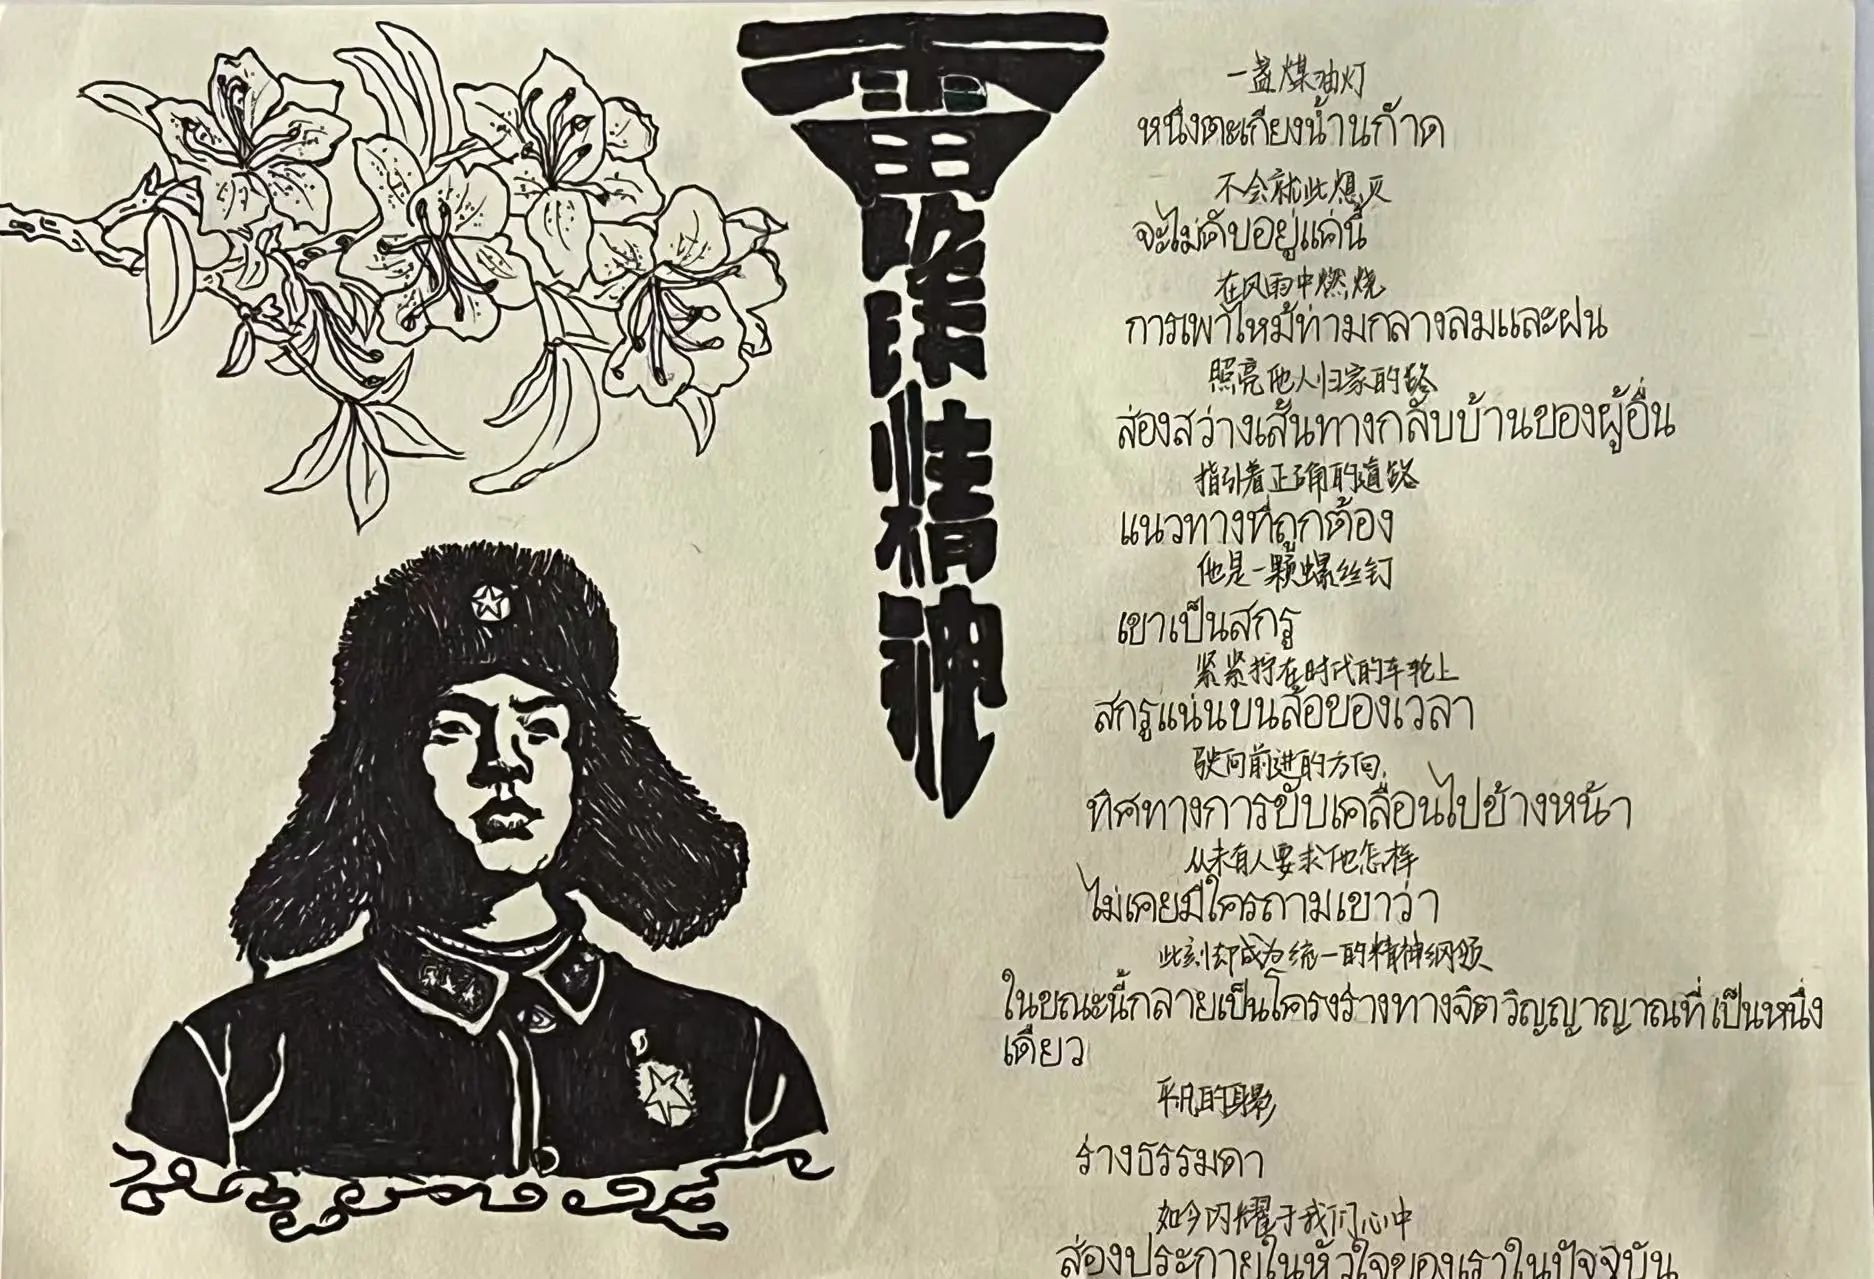 雷锋精神
一盏煤油灯
หนึ่งตะเกียงน้ำนก๊าด
不会就此熄灭
จะไม่ดับอยู่แค่นี้
在风雨中燃烧
การเผาไหม้ท่ามกลางลมและฝน
照亮他人归家的路
ส่องสว่างเส้นทางกลับบ้านของผู้อื่น
指引着正确的道路
แนวทางที่ถูกต้อง
他是一颗螺丝钉
เขาเป็นสกรู
紧紧拧在时代的车轮上
สกรูแน่นบนล้อของเวลา
驶向前进的方向
ทิศทางการขับเคลื่อนไปข้างหน้า
从未有人要求他怎样
ไม่เคยมีใครถามเขาว่า
此刻却成为统一的精神纲领
ในขณะนี้กลายเป็นโครงร่างทางจิตวิญญาญาณที่เป็นหนึ่ง
เดียว
平凡的身影
ร่างธรรมดา
如今闪耀于我们心中
ส่องประกายในหัวใจของเราในปัจจุบัน